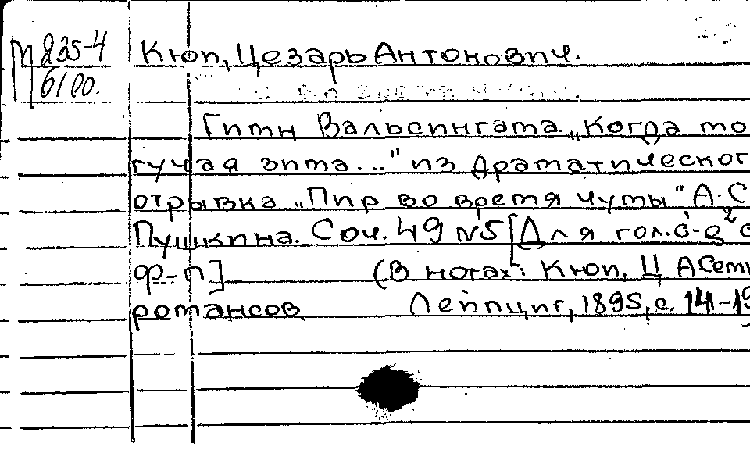 М 235-4
6100.
Кюи, Цезарь Антонович.
Гимн Вальсингама „Когда мо
гучая зима..." из драматическог
отрывка „Пир во время чумы" А.С
Пушкина. Соч. 49 №5 [Для гол. d-g² с
ф-п] (В нотах: Кюи, Ц. А Семь
романсов Лейпциг, 1895, с. 14-19